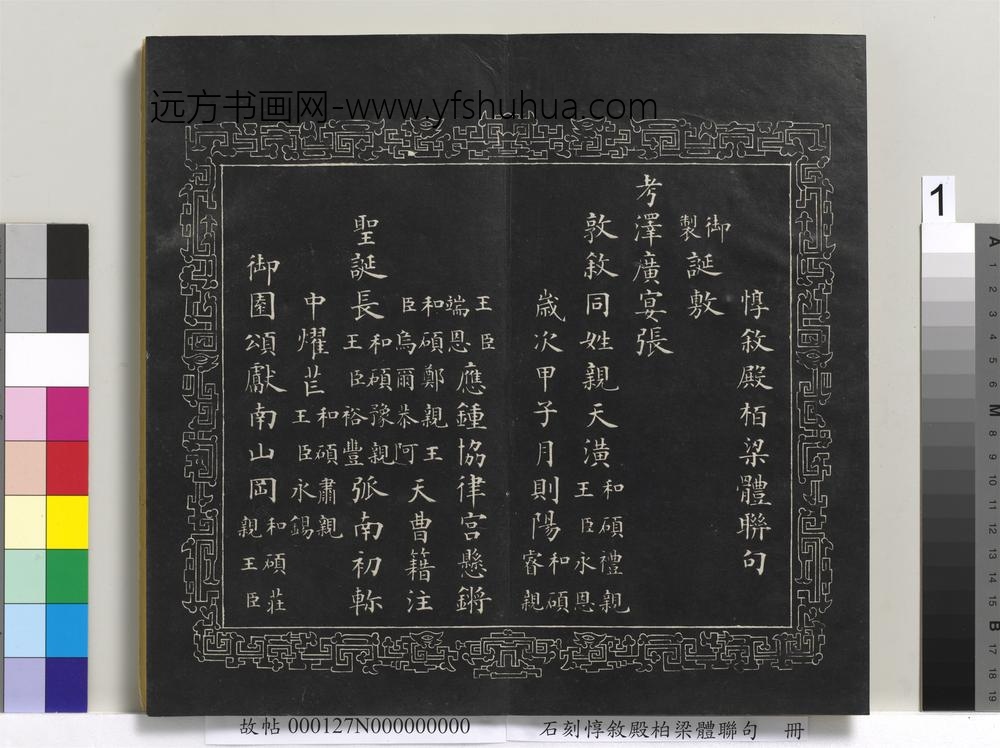 远方书画网-www.yfshuhua.com
惇敘殿柏梁體聯句
御製誕敷
考澤廣宴張
敦敘同姓親天潢和碩禮親王臣永恩
歲次甲子月則陽和碩睿親
王臣端恩應鍾協律宮懸鏘
和碩鄭親王臣烏爾恭阿天曹籍注
聖誕長和碩豫親王臣裕豐弧南初軫
中燿芒和碩肅親王臣永錫
御園頌獻南山岡和碩莊親王臣
故帖 000127N000000000
石刻惇敘殿柏梁體聯句 冊
1
A 1 2 3 4 5 6 M 8 9 10 11 12 13 14 15 B 17 18 19